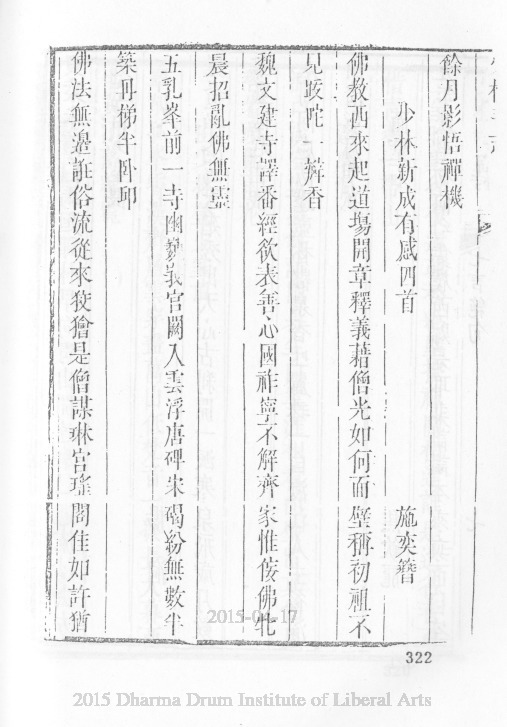 餘月影悟禪機
少林新成有感四首 施奕簪
佛教西來起道場開章釋義藉僧光如何面壁稱初祖不
見跋陀一瓣香
魏文建寺譯番經欲表善心國祚寧不解齊家惟佞佛牝
晨招亂佛無靈
五乳峯前一寺幽巍峩宮闕入雲浮唐碑宋碣紛無數半
築丹梯半臥邱
佛法無邊誑俗流從來狡獪是僧謀琳宮瑤閣佳如許猶
322
2015-04-17
2015 Dharma Drum Institute of Liberal Arts